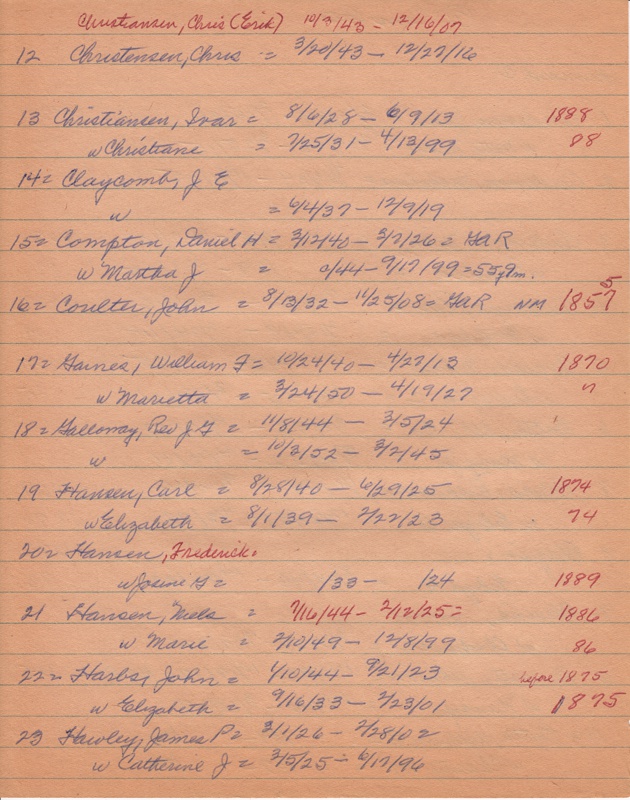 Christiansen, Chris (Erik) 10/3/43 - 12/16/07
12 Christensen, Chris = 3/20/43 - 12/27/16
13 Christiansen, Ivar = 8/6/28 - 6/9/13 1888
w Christiane = 7/25/31 - 4/13/99 88
14 = Claycomb, J E
w = 6/4/37 - 12/9/19
15 = Compton, Daniel H = 3/12/40 - 3/7/26 = GAR
w Martha J = /44 - 9/17/99 = 55y9m.
16 = Coulter, John = 8/13/32 - 11/25/08 = GAR NM 1857 5
17 = Gaines, William F = 10/24/40 - 4/27/13 1870
w Marietta = 3/24/50 - 4/19/27 "
18 = Galloway, Rev J G = 11/8/44 - 3/5/24
w = 10/3/52 - 3/2/45
19 Hansen, Carl = 8/28/40 - 6/29/25 1874
w Elizabeth = 8/1/39 - 2/22/23 74
20 = Hansen, Frederick.
w Josine G = /33 - /24 1889
21 Hansen, Nels = 7/16/44 - 2/12/25 = 1886
w Marie = 2/10/49 - 12/8/99 86
22 = Harbs, John = 1/10/44 - 9/21/23 before 1875
w Elizabeth = 9/16/33 - 2/23/01 1875
23 Hawley, James P = 3/1/26 - 2/28/02
w Catherine J = 3/5/25 - 6/17/96